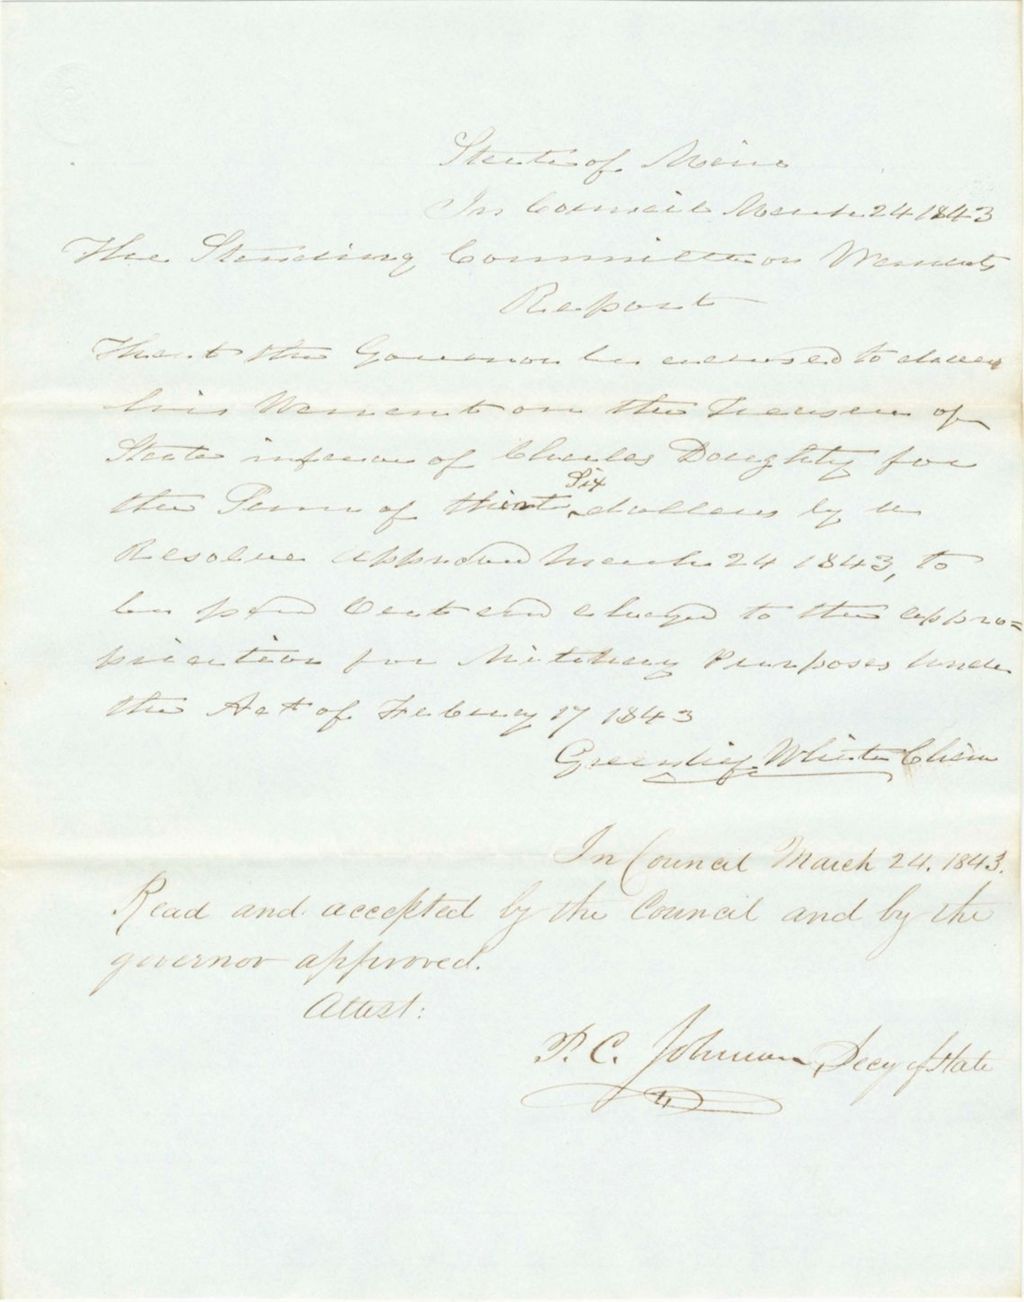 State of Maine
In Council March 24 1843
The Standing Committee on Warrants
Report
That the Governor be advised to draw
his Warrant on the Treasurer of
State in favor of Charles Doughty for
the Sum of thirty Six dollars by a
Resolve approved March 24 1843, to
be paid out and charged to the appro=
priation for Military Purposes under
the Act of February 17 1843
Greenlief White Chairm
In Council March 24. 1843.
Read and accepted by the Council and by the
governor approved.
Attest:
P. C. Johnson, Secy of State